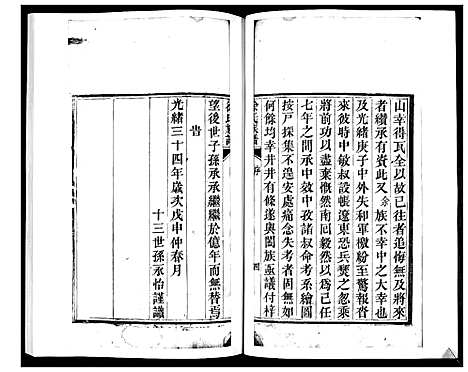 山幸得瓦全以故已往者追悔無及將來
者續承有資此又余族不幸中之大幸也
及光緒庚子中外失和軍檄紛至驚報沓
來彼時中敏叔設帳遼東恐兵燹之忽乘
將前功以盡棄慨然南回毅然以為己任
七年之間承中效中孜諸叔命考系繪圖
按戶採集不遑安處痛念失考者固無如
何餘均幸井井有條遂與闔族亟議付梓
望後世子孫承承繼繼於億年而無替焉
旹
光緒三十四年歲次戊申仲春月
十三世孫承怡謹識
徐氏族譜
序
四